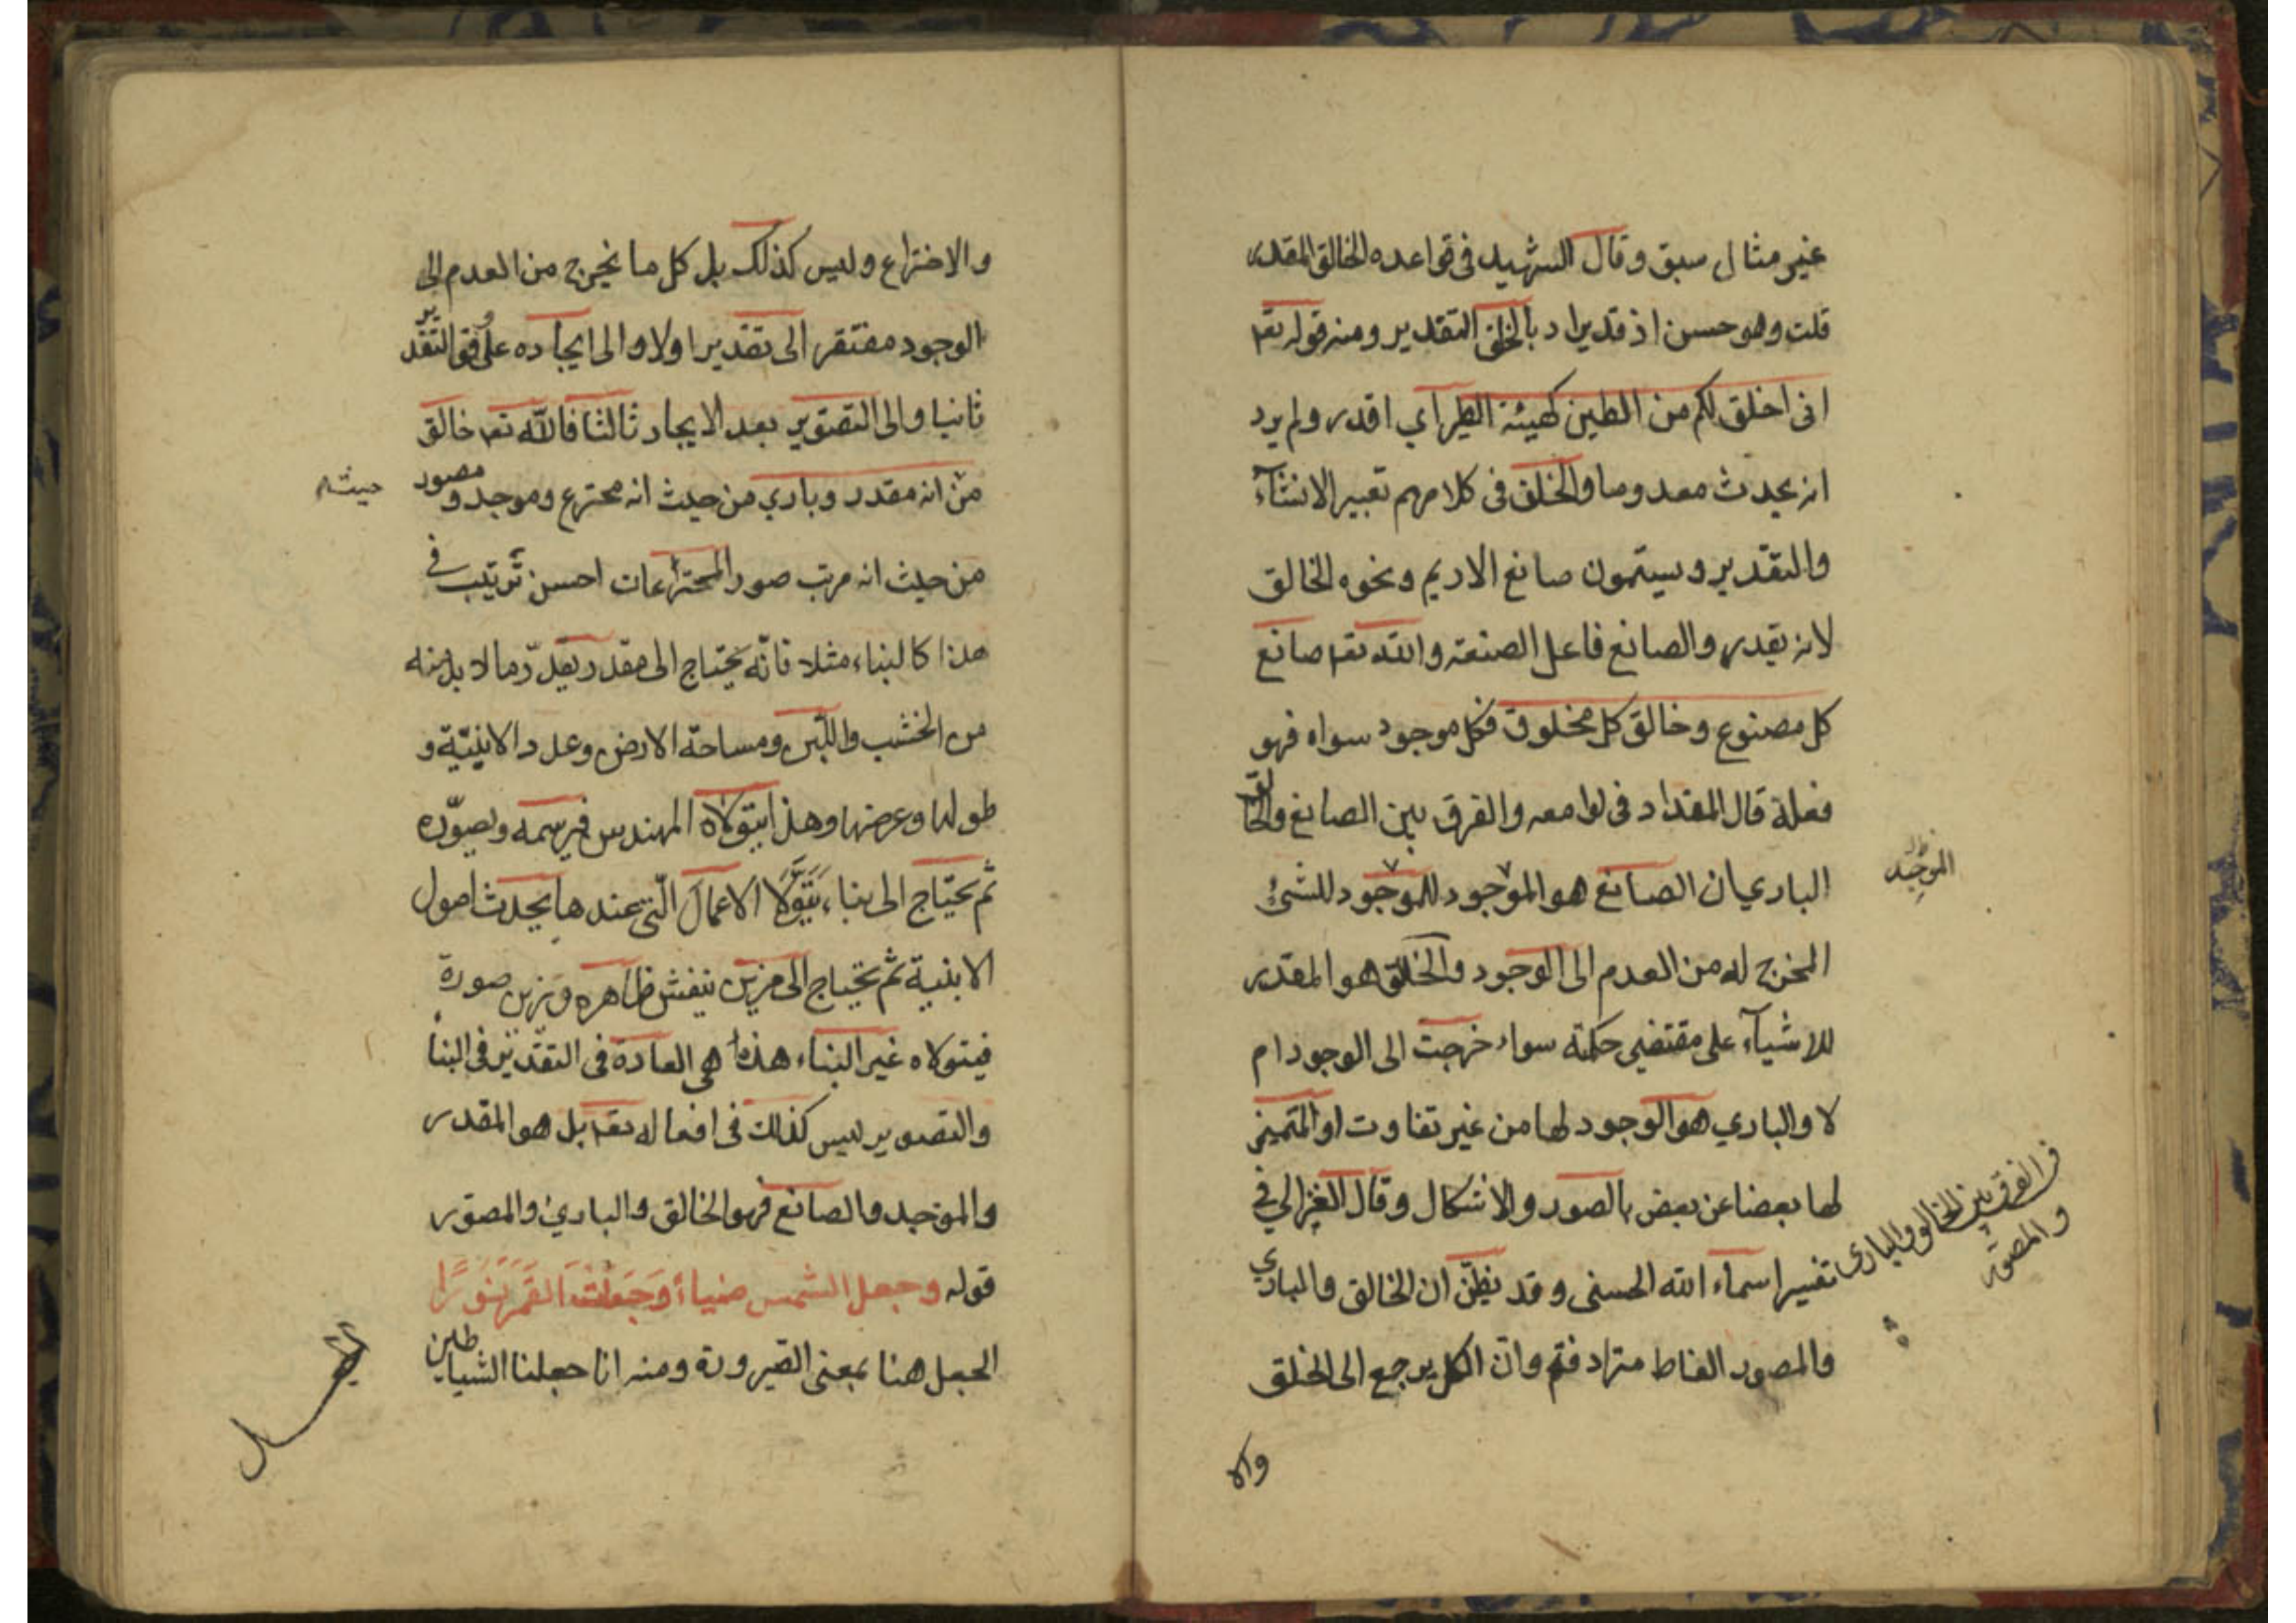 غير مثال سبق وقال الشهيد في قواعده الخالق المقدر
قلت وهو حسن اذ قد يراد بالخلق التقدير ومنه قوله تعا
اني اخلق لكم من الطين كهيئة الطير اي اقدر ولم يرد
انه يحدث معدوما والخلق في كلامهم تعبير الانشآء
والتقدير ويسمون صانع الاديم ونحوه الخالق
لانه يقدر والصانع فاعل الصنعة والله تعا صانع
كل مصنوع وخالق كل مخلوق فكل موجود سواه فهو
فعله قال المقداد في لوامعه والفرق بين الصانع والخالق
الباري ان الصانع هو الموجود للموجود للشئ
الموجد
المخرج له من العدم الى الوجود والخالق هو المقدر
للاشيآء على مقتضى حكمته سواء خرجت الى الوجود ام
لا والباري هو الوجود لها من غير تفاوت او المتميز
لها بعضا عن بعض بالصور والاشكال وقال الغزالي في
تفسير اسماء الله الحسنى وقد يظن ان الخالق والباري
والمصور الفاظ مترادفة وان الكل يرجع الى الخلق
ف الفرق بين الخالق والباري
والمصور
والا
والاختراع وليس كذلك بل كل ما يخرج من العدم الى
الوجود مفتقر الى تقدير اولا والى ايجاده على وفق التقدير
ثانيا والى التصوير بعد الايجاد ثالثا فالله تعا خالق
من انه مقدر وباري من حيث انه مخترع وموجد ومصور
حيث
من حيث انه مرتب صور المخترعات احسن ترتيب في
هذا كالبناء مثلا فانه يحتاج الى مقدر يقدر ما لا بد منه
من الخشب واللبن ومساحة الارض وعدد الابنية و
طولها وعرضها وهذا يتولاه المهندس فيرسمه ويصوره
ثم يحتاج الى بناء يتولا الاعمال التي عندها يحدث اصول
الابنية ثم يحتاج الى مزين ينقش ظاهره ويزين صورة
فيتولاه غير البناء هذه هي العادة في التقدير في البنا
والتصوير ليس كذلك في افعاله تعا بل هو المقدر
والموجد والصانع فهو الخالق والبارئ والمصور
قوله وجعل الشمس ضياء وجعلت القمر نورا
الجعل هنا بمعنى الصيرورة ومنه انا جعلنا الشياطين